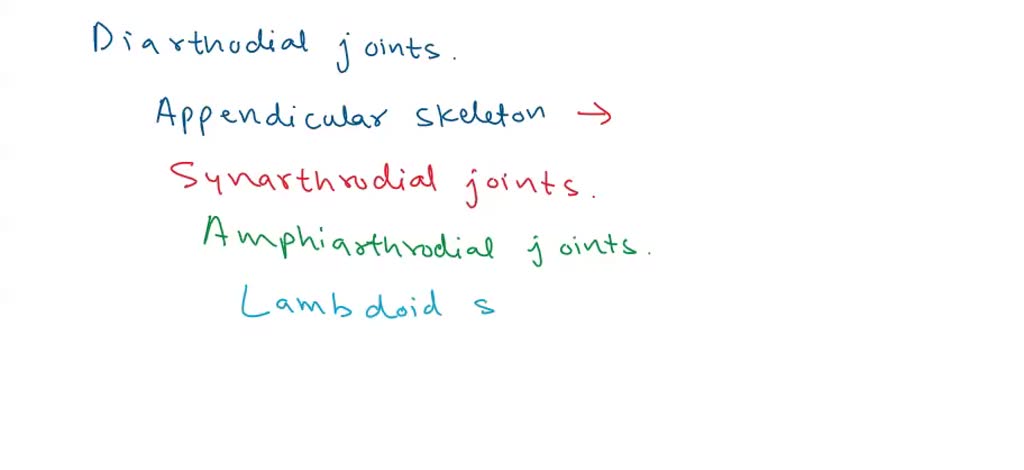 Diarthodial joints.
Appendicular skeleton →
Synarthrodial joints.
Amphiarthrodial joints.
Lambdoid s